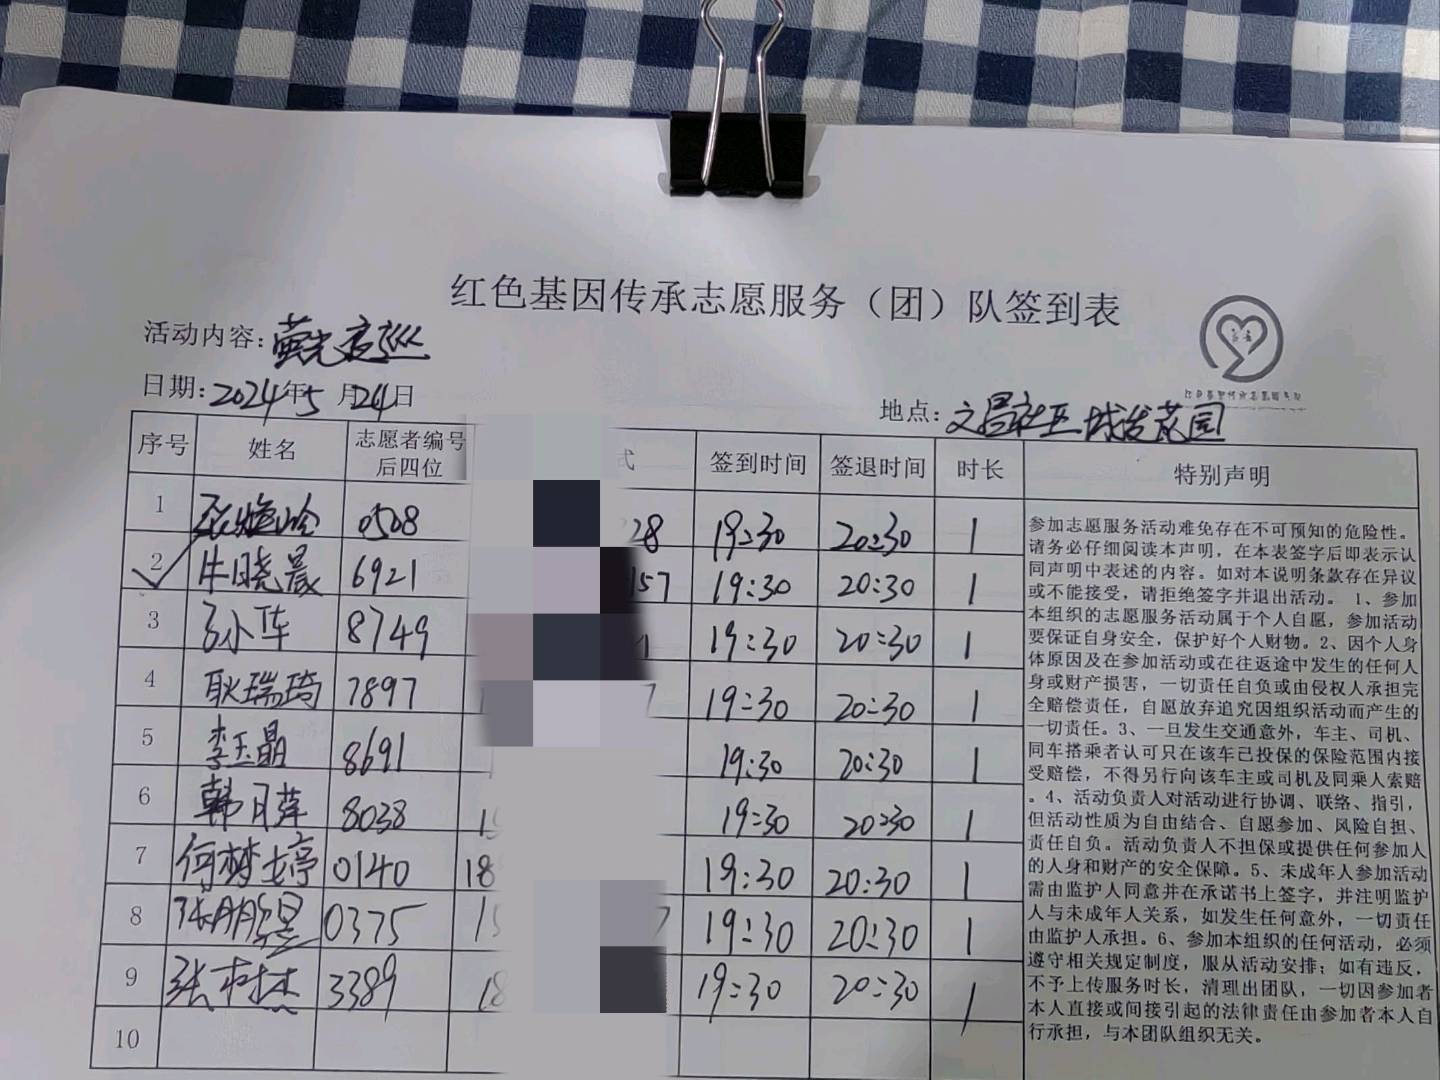 红色基因传承志愿服务（团）队签到表
活动内容：萤光夜巡
日期：2024年5月24日
地点：文昌社区城发花园
序号 姓名 志愿者编号后四位 式 签到时间 签退时间 时长 特别声明
1 0508 28 19:30 20:30 1
2 牛晓晨 6921 157 19:30 20:30 1
3 8749 1 19:30 20:30 1
4 耿瑞琦 7897 1 7 19:30 20:30 1
5 李玉晶 8691 19:30 20:30 1
6 韩月萍 8038 19:30 20:30 1
7 何梦婷 0140 18 19:30 20:30 1
8 0375 15 19:30 20:30 1
9 3389 18 19:30 20:30 1
10
参加志愿服务活动难免存在不可预知的危险性。
请务必仔细阅读本声明，在本表签字后即表示认
同声明中表述的内容。如对本说明条款存在异议
或不能接受，请拒绝签字并退出活动。 1、参加
本组织的志愿服务活动属于个人自愿，参加活动
要保证自身安全，保护好个人财物。2、因个人身
体原因及在参加活动或在往返途中发生的任何人
身或财产损害，一切责任自负或由侵权人承担完
全赔偿责任，自愿放弃追究因组织活动而产生的
一切责任。3、一旦发生交通意外，车主、司机、
同车搭乘者认可只在该车已投保的保险范围内接
受赔偿，不得另行向该车主或司机及同乘人索赔
。4、活动负责人对活动进行协调、联络、指引，
但活动性质为自由结合、自愿参加、风险自担、
责任自负。活动负责人不担保或提供任何参加人
的人身和财产的安全保障。5、未成年人参加活动
需由监护人同意并在承诺书上签字，并注明监护
人与未成年人关系，如发生任何意外，一切责任
由监护人承担。6、参加本组织的任何活动，必须
遵守相关规定制度，服从活动安排；如有违反，
不予上传服务时长，清理出团队，一切因参加者
本人直接或间接引起的法律责任由参加者本人自
行承担，与本团队组织无关。